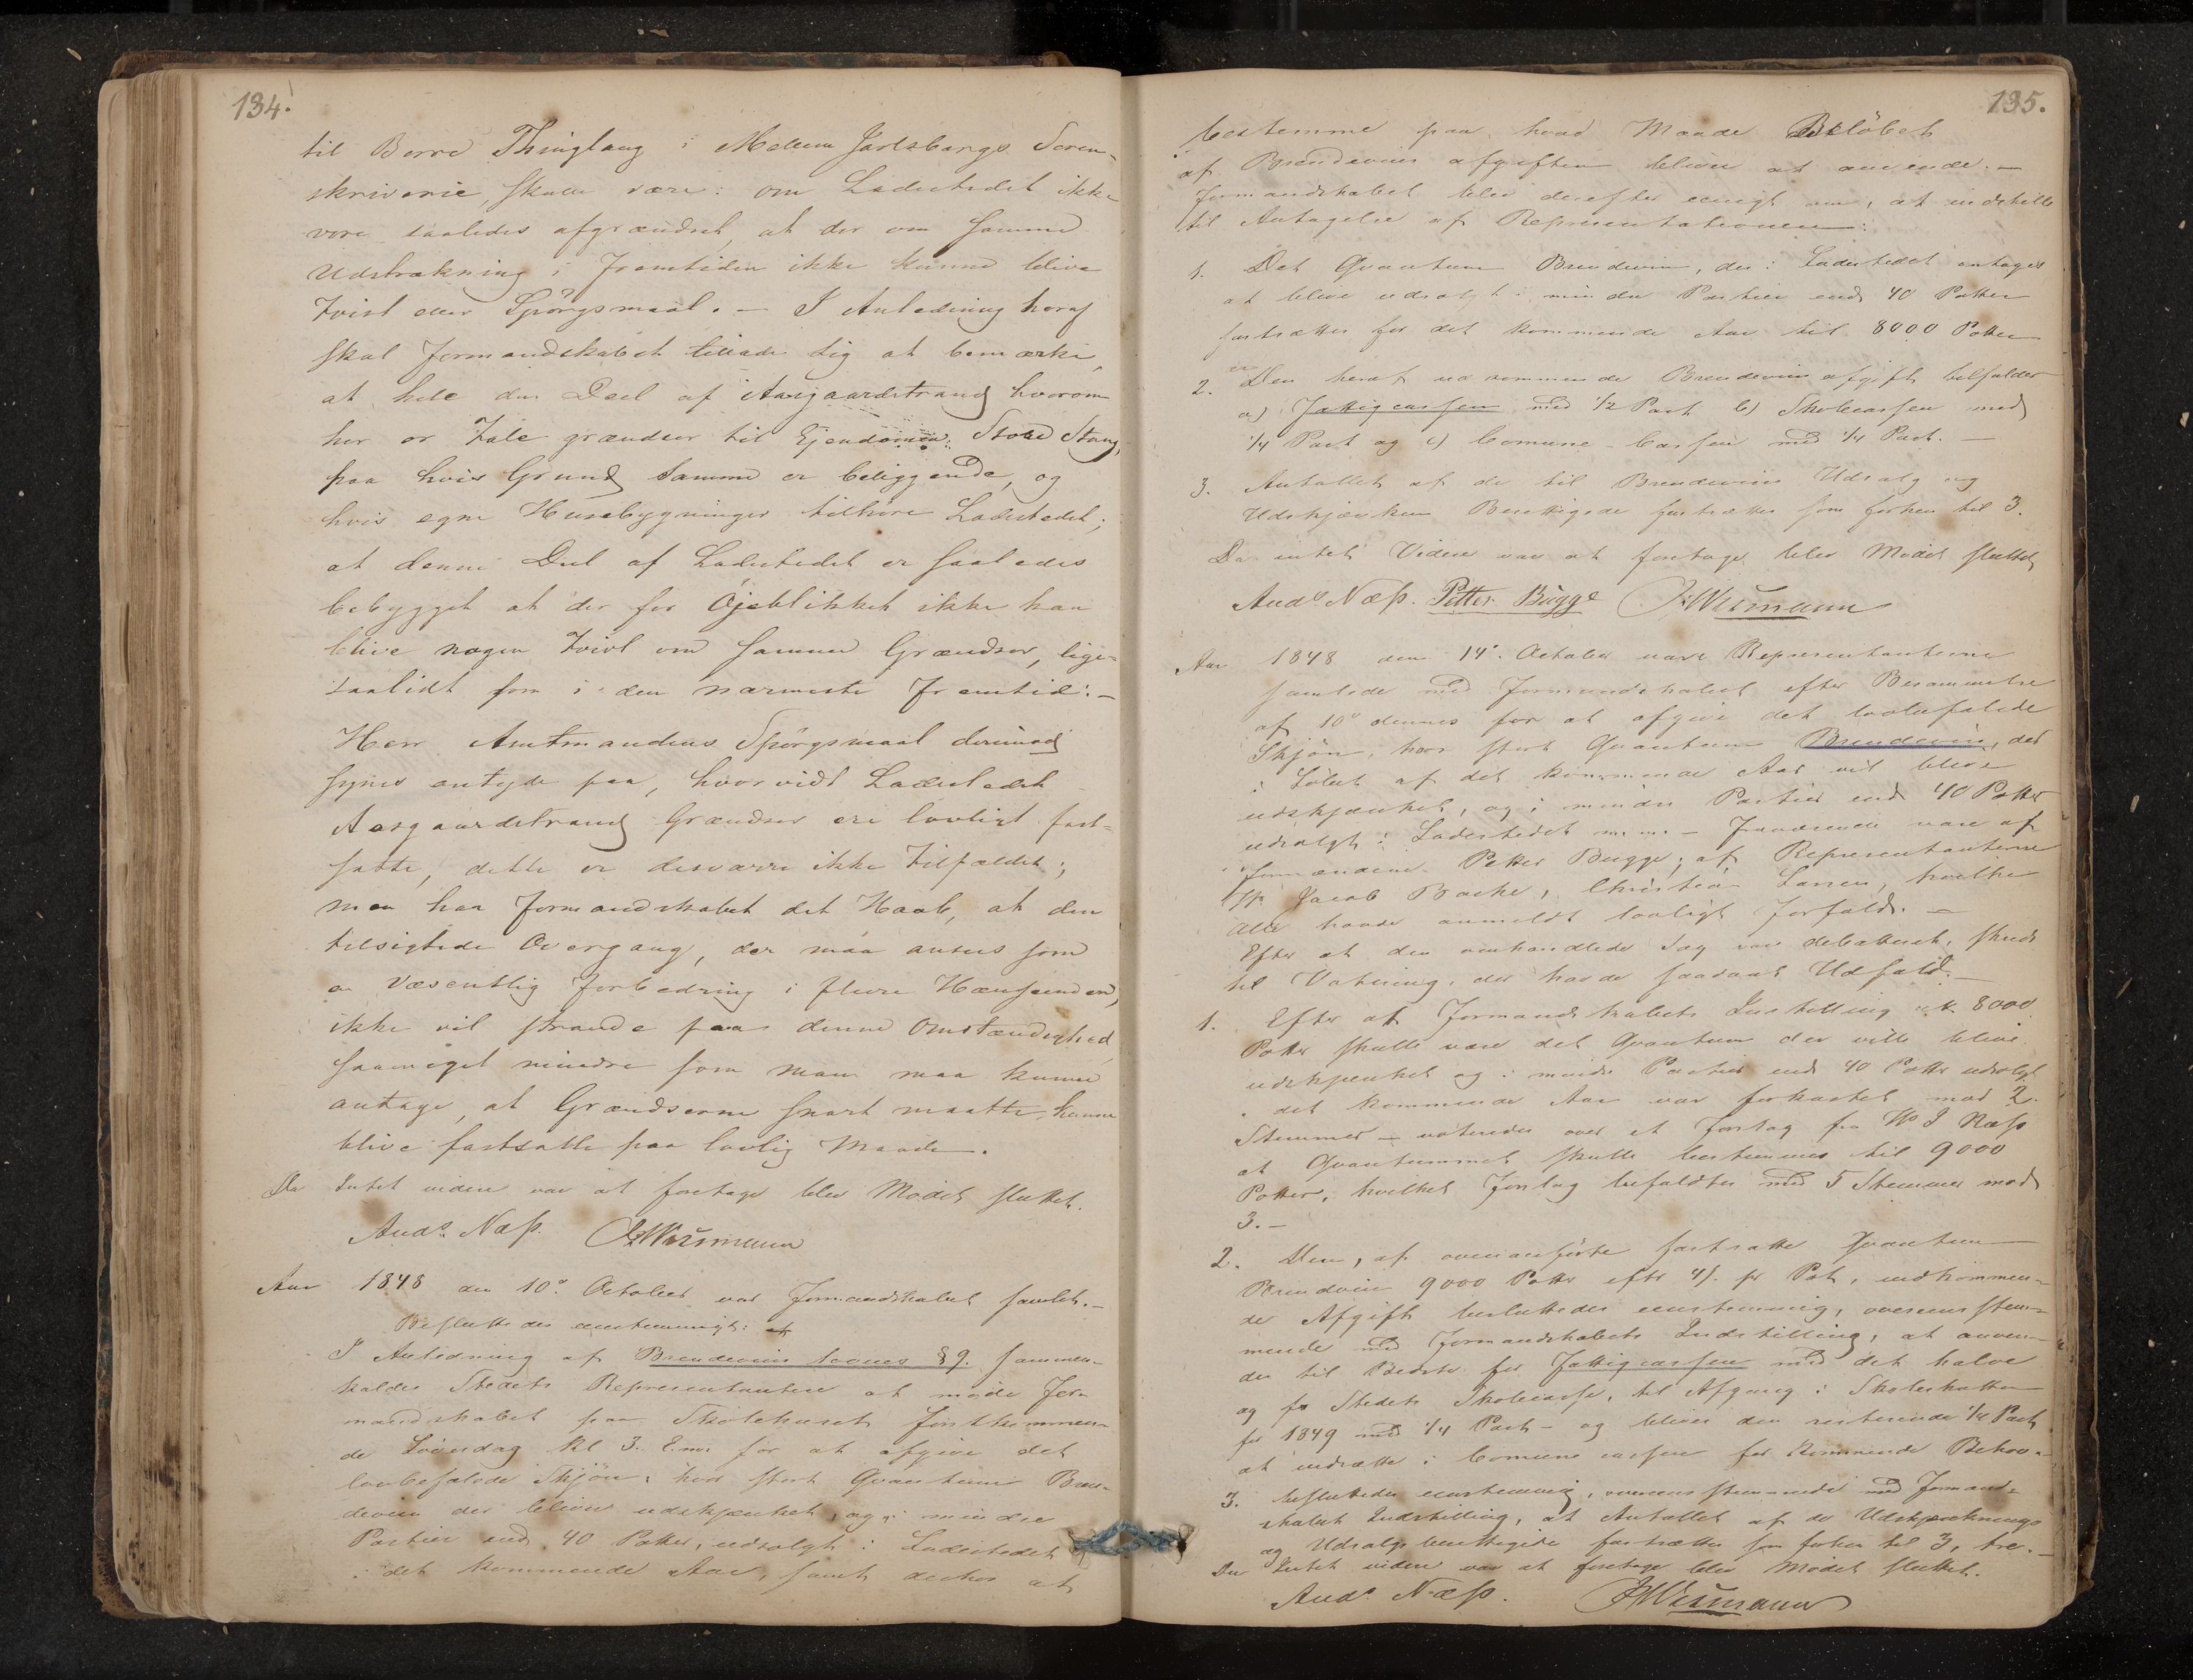 134.
til Borre Thinglaug i Mellem Jarlsbergs Soren-
skriverie, skulle være: om Ladestedet ikke
vore saaledes afgrændset, at der om samme
Udstrækning i Fremtiden ikke kunne blive
Tvist eller Spörgsmaal. — I Anledning heraf
skal Formandskabet tillade sig at bemærke,
at hele den Deel af Aasgaardstrand hvorom
her er Tale grændser til Ejendomen Store Stang,
paa hvis Grund samme er beliggende, og
hvis egne Husebygninger tilhøre Ladestedet;
at denne Deel af Ladestedet er saaledes
bebygget at der for Öjeblikket ikke kan
blive nogen Tvivl om samme Grændser, lige-
saalidt som i den nærmeste Fremtid. —
Herr Amtmandens Spörgsmaal derimod
synes antyde paa, hvorvidt Ladestedet
Aasgaardstrand Grændser ere lovligt fast-
satte, dette er desværre ikke Tilfældet;
men har Formandskabet det Haab, at den
tilsigtede Overgang, der maa ansees som
en Væsentlig Forbedring i flere Hænseender,
ikke vil strande paa denne Omstændighed,
saameget mindre som man maa kunne
antage, at Grændserne snart maatte kunne
blive fastsatte paa lovlig Maade.
Da Intet videre var at foretage blev Mödet sluttet.
Ands. Næss. Wiesmann
Aar 1848 den 10de October var Formandskabet samlet. —
Besluttedes eenstemmigt: at
I Anledning af Brendeviins lovens § 9. sammen-
kaldes Stedets Repræsentantere at møde For-
mandskabet paa Skolehuset förstkommen-
de Löverdag Kl 3. E.m. for at afgive det
lovbefalede Skjön, hvor stort Quantum Bren-
deviin der bliver udskjænket, og i mindre
Partier end 40 Potter, udsolgt i Ladestedet
i det kommende Aar, samt derhos at
135.
bestemme paa hvad Maade Belöbet
af Brendeviins afgiften bliver at anvende. —
Formandskabet blev derefter eenigt om, at indstille
til Antagelse af Repræsentationen:
1. Det Qvantum Brendeviin, der i Ladestedet antages
at blive udsolgt i mindre Partier end 40 Potter
fastsættes for det kommende Aar til 8000 Potter
2. Den heraf udkommende Brendeviins afgift tilfalder
a) Fattigcassen med 1/2 Part b) Skolecassen med
1/4 Part og c) Comune-Cassen med 1/4 Part. —
3. Antallet af de til Brendeviins Udsalg og
Udskjænken Berettigede fastsættes som forhen til 3.
Da intet Videre var at foretage blev Mödet sluttet
Ands Næss. Petter Bugge Wiesmann
Aar 1848 den 14de October vare Repræsentanterne
samlede med Formandskabet efter Berammelse
af 10de dennes for at afgive det lovbefalede
Skjön, hvor stort Quantum Brendeviin, der
i Löbet af det kommende Aar vil blive
udskjænket, og i mindre Partier end 40 Potter
udsolgt i Ladestedet m. m. — Fraværende vare af
Formændene Petter Bugge; af Repræsentanterne
Jacob Backe, Christian Larsen, hvilke
alle havde anmeldt lovligt Forfald. —
Efter at den omhandlede Sag var debatteret, skred
til Votering, der havde saadant Udfald. —
1. Efter at Formandskabets Indstilling 8000
Potter skulle være det Qvantum der ville blive
udskjænket og i mindre Partier end 40 Potter udsolgt
i det kommende Aar var forkastet mod 2
Stemmer — voteredes over et Forslag fra Næss
at Qvantummet skulle bestemmes til 9000
Potter, hvilket Forslag bifaldtes med 5 Stemmer mod
3. —
2. Den, af ovenanförte fastsatte Quantum
Brendeviin 9000 Potter efter 4/. pr Pot, indkommen-
de Afgift besluttedes eenstemmig, overeensstem-
mende med Formandskabets Indstilling, at anven-
des til Bedste for Fattigcassen med det halve
og for Stedets Skolecasse, til Afgang i Skoleskatten
for 1849 med 1/4 Part — og bliver den resterende 1/4 Part
at indsætte i Comune cassen for kommende Behov.
3. besluttedes eenstemmig, overeensstemmende med Formand-
skabets Indstilling, at Antallet af de Udskjænknings
og Udsalgs berettigede fastsættes som forhen til 3, tre. —
Da Intet videre var at foretage blev Mödet sluttet.
Ands Næss. Wiesmann